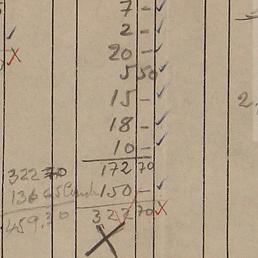 7 -
2 -
20 -
5 50
15 -
18 -
10 -
322 70 172 70
136 65 Cash 150 -
459.30 322 70
2